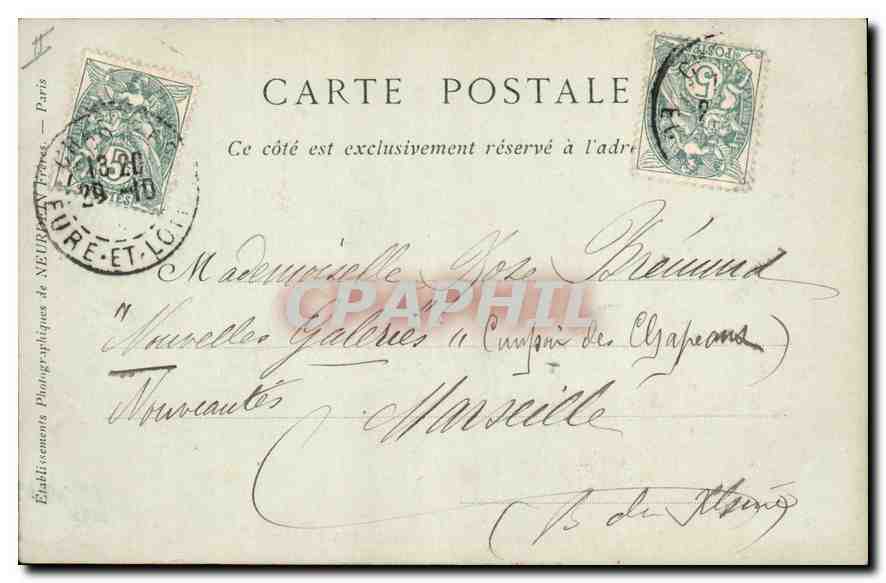 II
CARTE POSTALE
Ce côté est exclusivement réservé à l'adre
Établissements Photographiques de NEURDEIN Frères. — Paris
13·20
29 -10
EURE-ET-LOI
5
POSTES
5
Mademoiselle Rose Brémond
"Nouvelles Galeries" (Comptoir des Chapeaux)
Nouveautés Marseille
(B du Rhône)
CPAPHIL